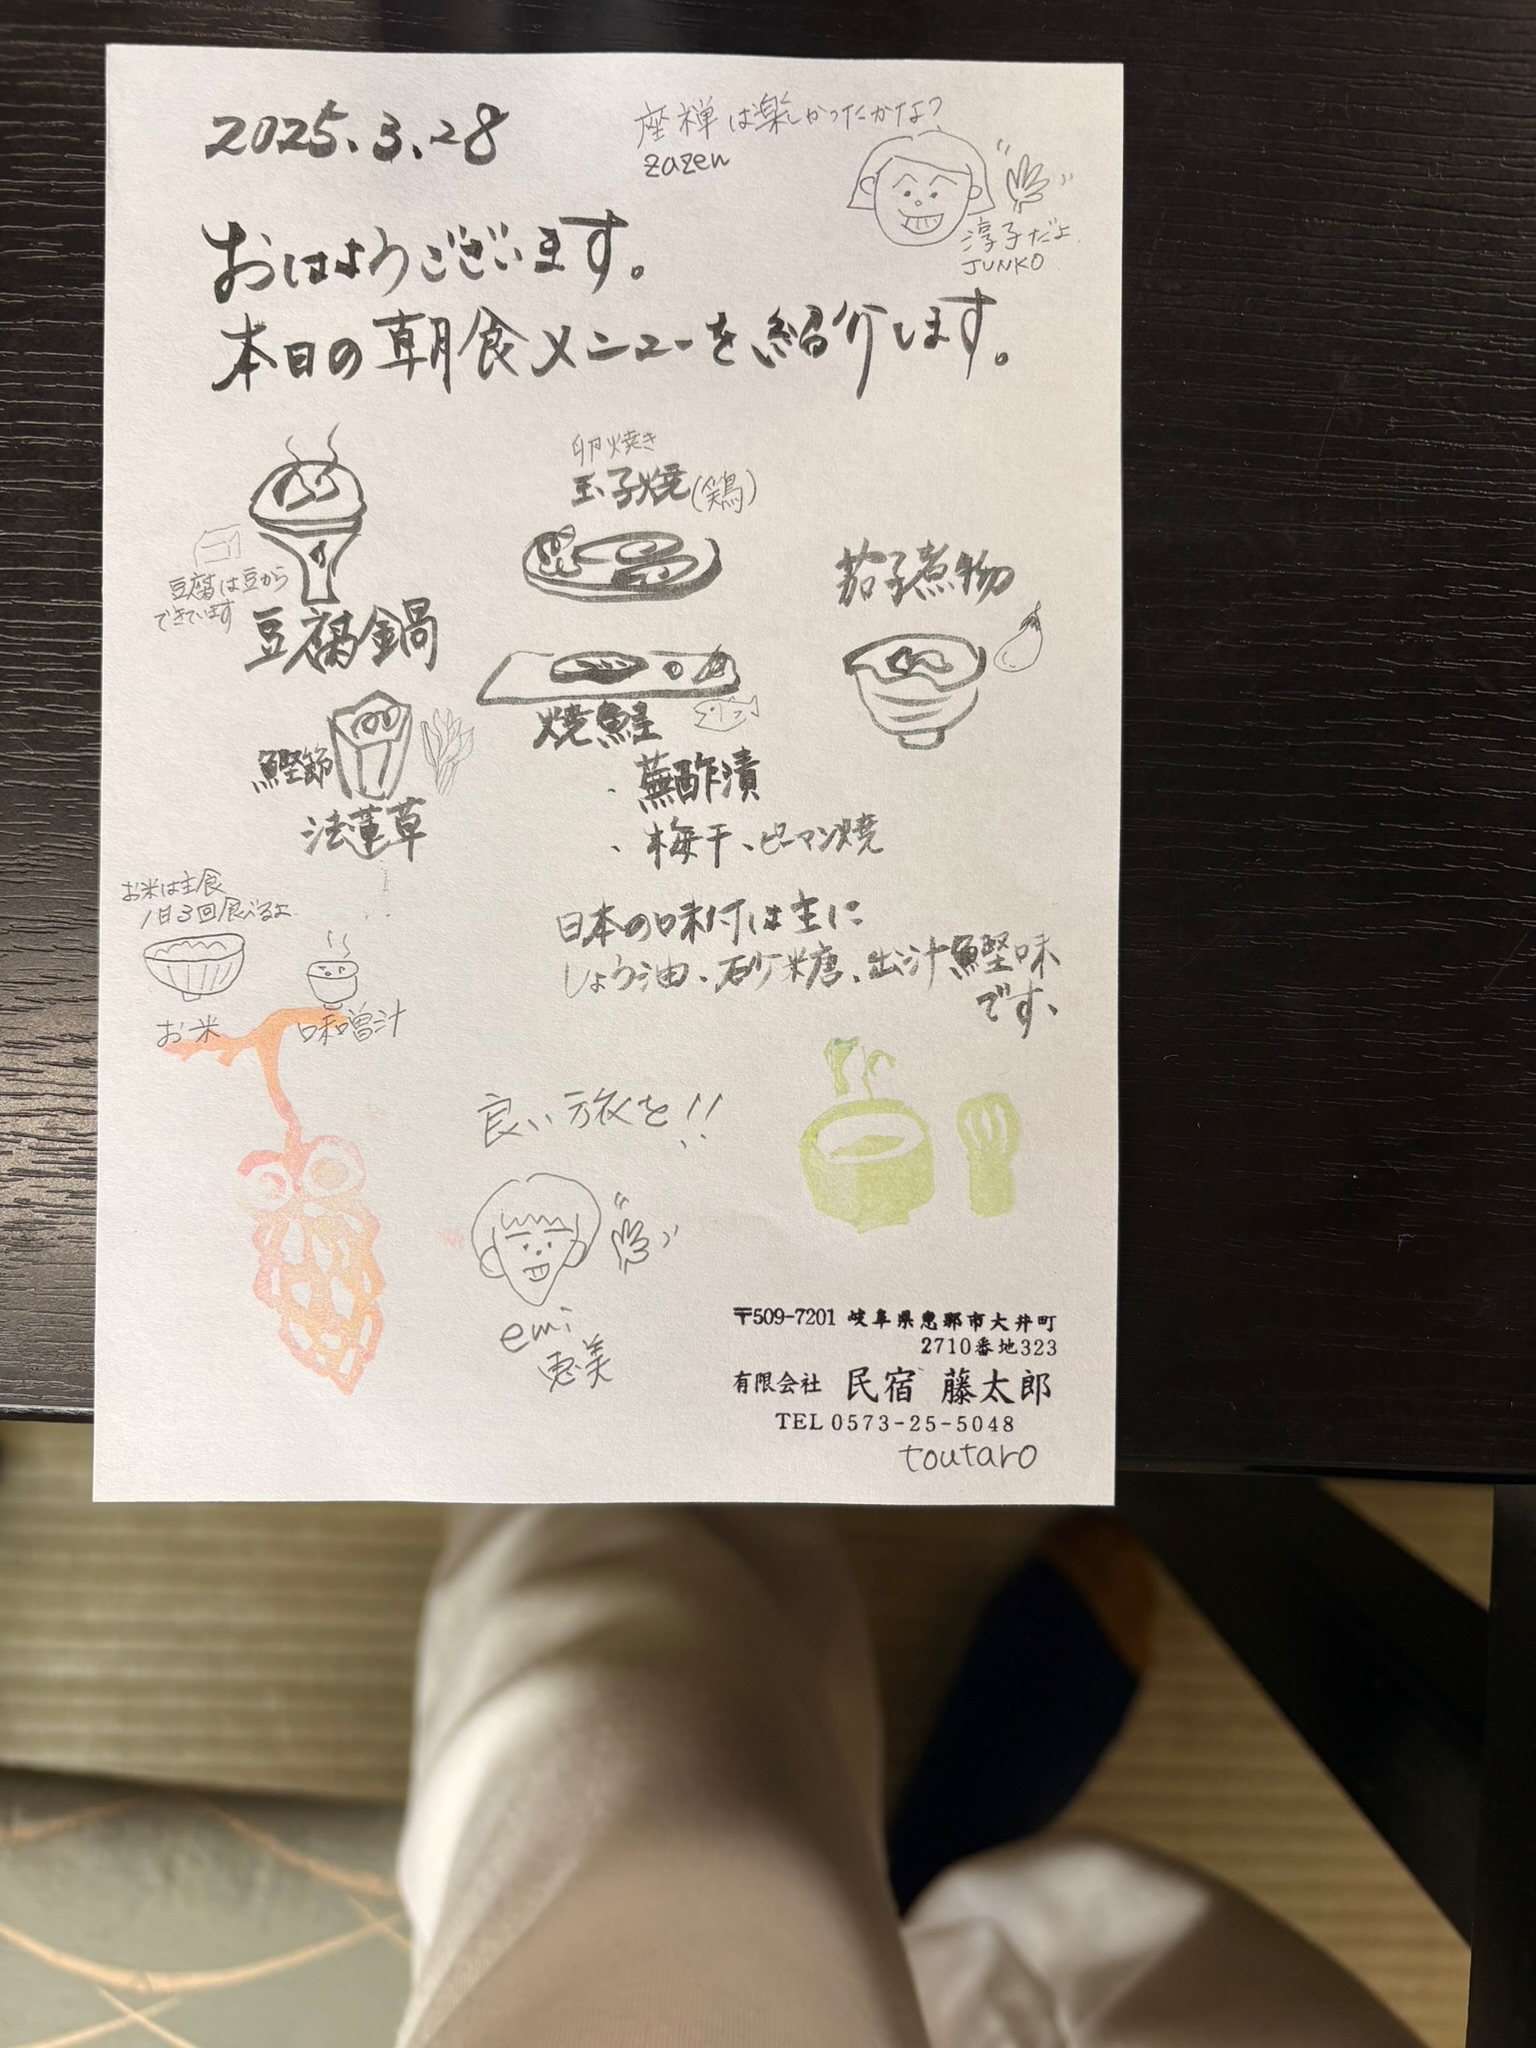 2025.3.28
座禅は楽しかったかな?
zazen
淳子だよ
JUNKO
おはようございます。
本日の朝食メニューを紹介します。
卵焼き
玉子焼(鶏)
豆腐は豆から
できています
豆腐鍋
茄子煮物
焼鮭
鰹節
法蓮草
・蕪酢漬
・梅干、ピーマン焼
お米は主食
1日3回食べるよ
お米
味噌汁
日本の味付は主に
しょう油、砂糖、出汁鰹味
です、
良い旅を!!
emi
恵美
〒509-7201 岐阜県恵那市大井町
2710番地323
有限会社 民宿 藤太郎
TEL 0573-25-5048
toutaro